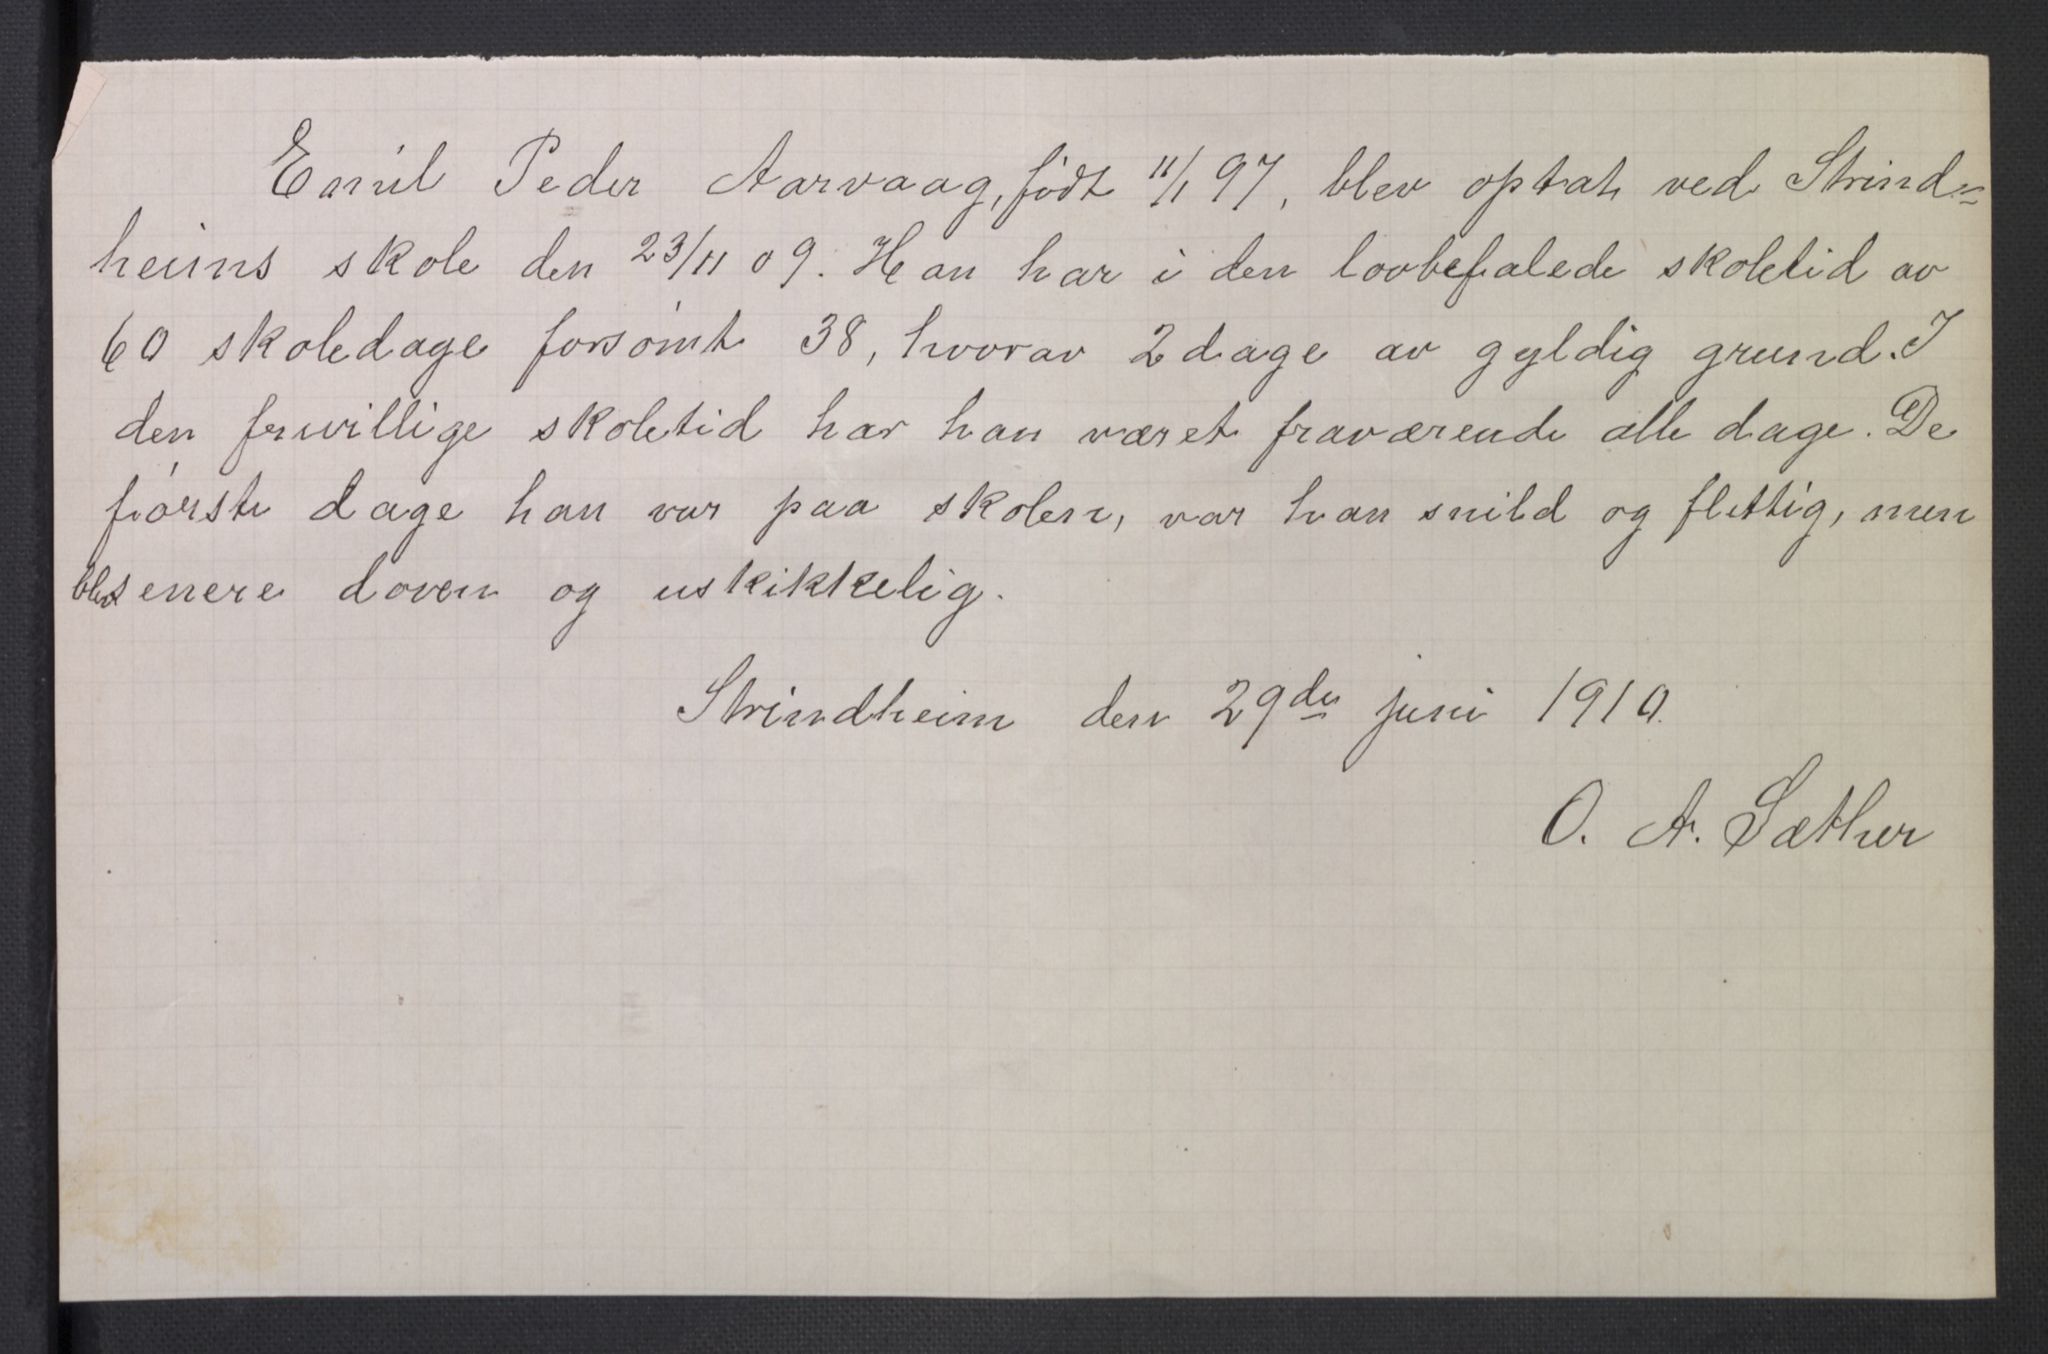 Emil Peder Aarvaag, født 11/1 97, blev optat ved Strind=
heims skole den 23/11 09. Han har i den lovbefalede skoletid av
60 skoledage forsømt 38, hvorav 2 dage av gyldig grund. I
den frivillige skoletid har han været fraværende alle dage. De
første dage han var paa skolen, var han snild og flittig, men
blev senere doven og uskikkelig.
Strindheim den 29de juni 1910.
O. A. Sæther